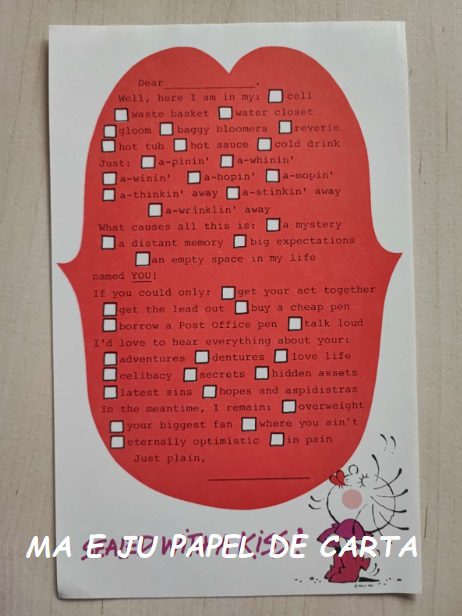 Dear______________,
Well, here I am in my: ☐ cell
☐ waste basket ☐ water closet
☐ gloom ☐ baggy bloomers ☐ reverie
☐ hot tub ☐ hot sauce ☐ cold drink
Just: ☐ a-pinin' ☐ a-whinin'
☐ a-winin' ☐ a-hopin' ☐ a-mopin'
☐ a-thinkin' away ☐ a-stinkin' away
☐ a-wrinklin' away
What causes all this is: ☐ a mystery
☐ a distant memory ☐ big expectations
☐ an empty space in my life
named YOU!
If you could only: ☐ get your act together
☐ get the lead out ☐ buy a cheap pen
☐ borrow a Post Office pen ☐ talk loud
I'd love to hear everything about your:
☐ adventures ☐ dentures ☐ love life
☐ celibacy ☐ secrets ☐ hidden assets
☐ latest sins ☐ hopes and aspidistras
In the meantime, I remain: ☐ overweight
☐ your biggest fan ☐ where you ain't
☐ eternally optimistic ☐ in pain
Just plain,
______________
SEALED WITH A KISS
MA E JU PAPEL DE CARTA